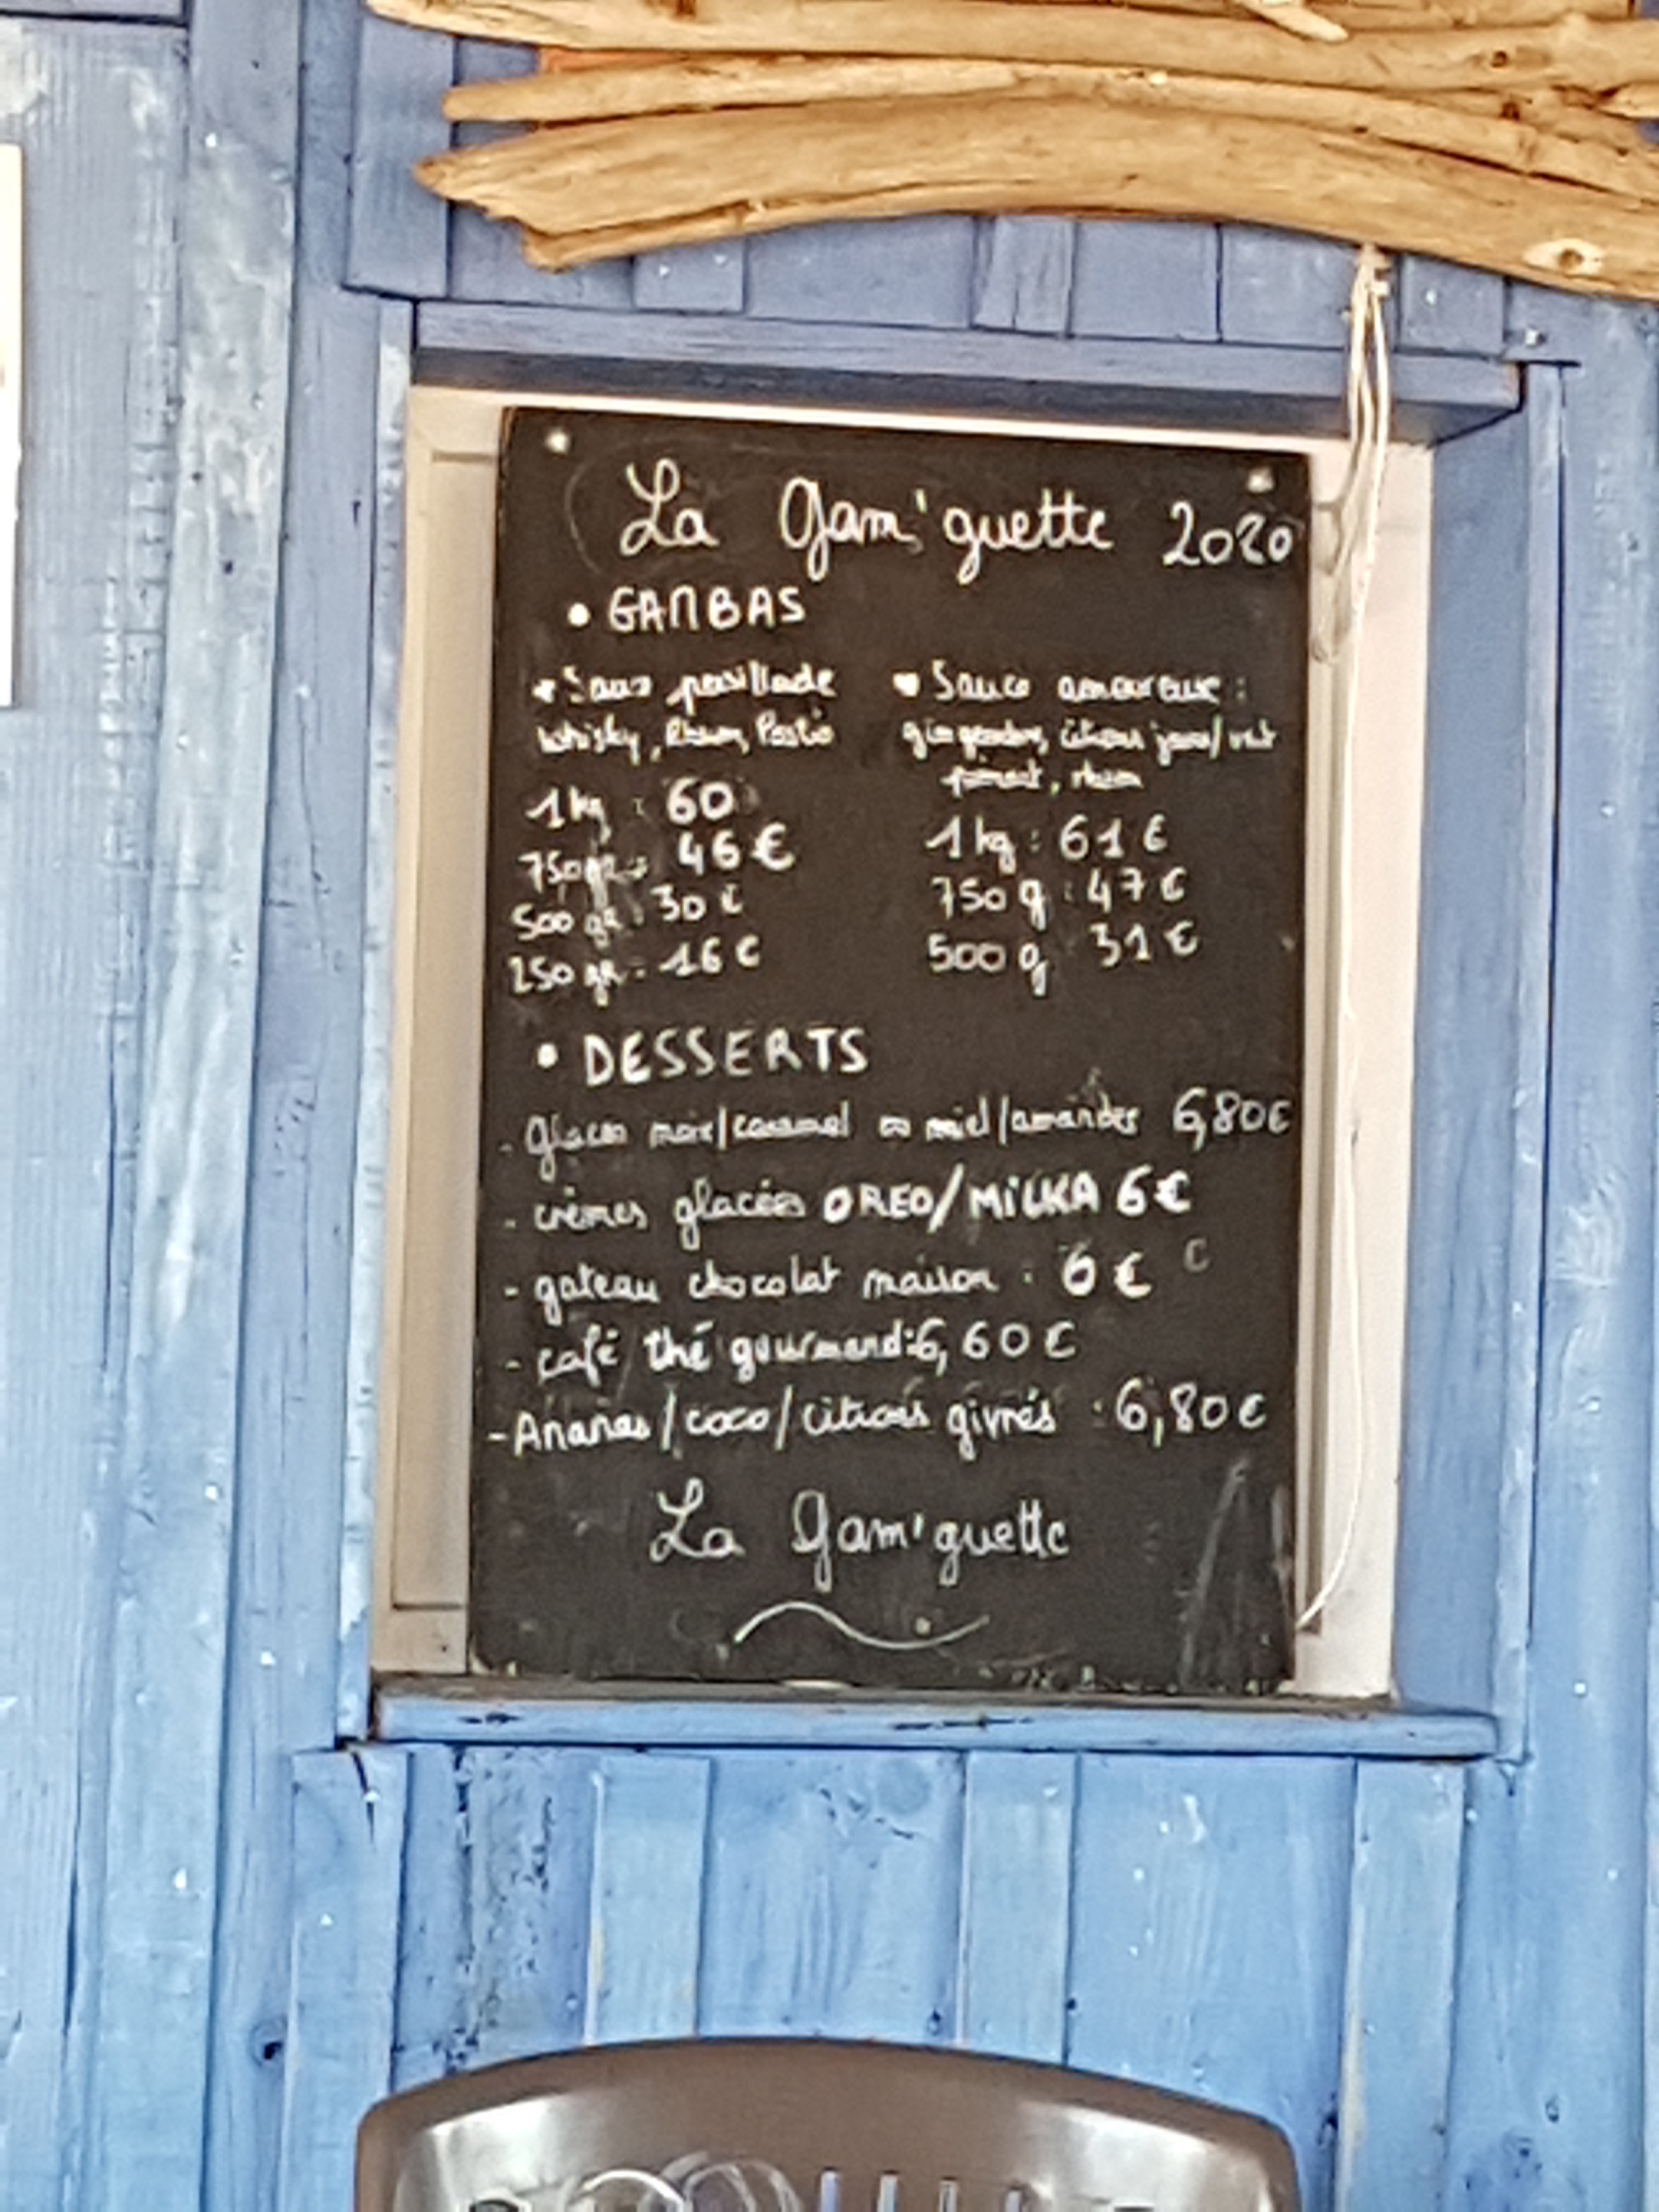 La Gam'guette 2020
• GAMBAS
Sauce persillade
whisky, Rhum, Pastis
1 kg : 60
750 gr : 46 €
500 gr : 30 €
250 gr : 16 €
Sauce amoureuse :
gingembre, citrons jaune/vert
piment, rhum
1 kg : 61 €
750 g : 47 €
500 g 31 €
• DESSERTS
- glaces noix/caramel ou miel/amandes 6,80€
- crèmes glacées OREO/MiLKA 6€
- gateau chocolat maison : 6 €
- café thé gourmand: 6,60 €
- Ananas/coco/citrons givrés : 6,80 €
La Gam'guette